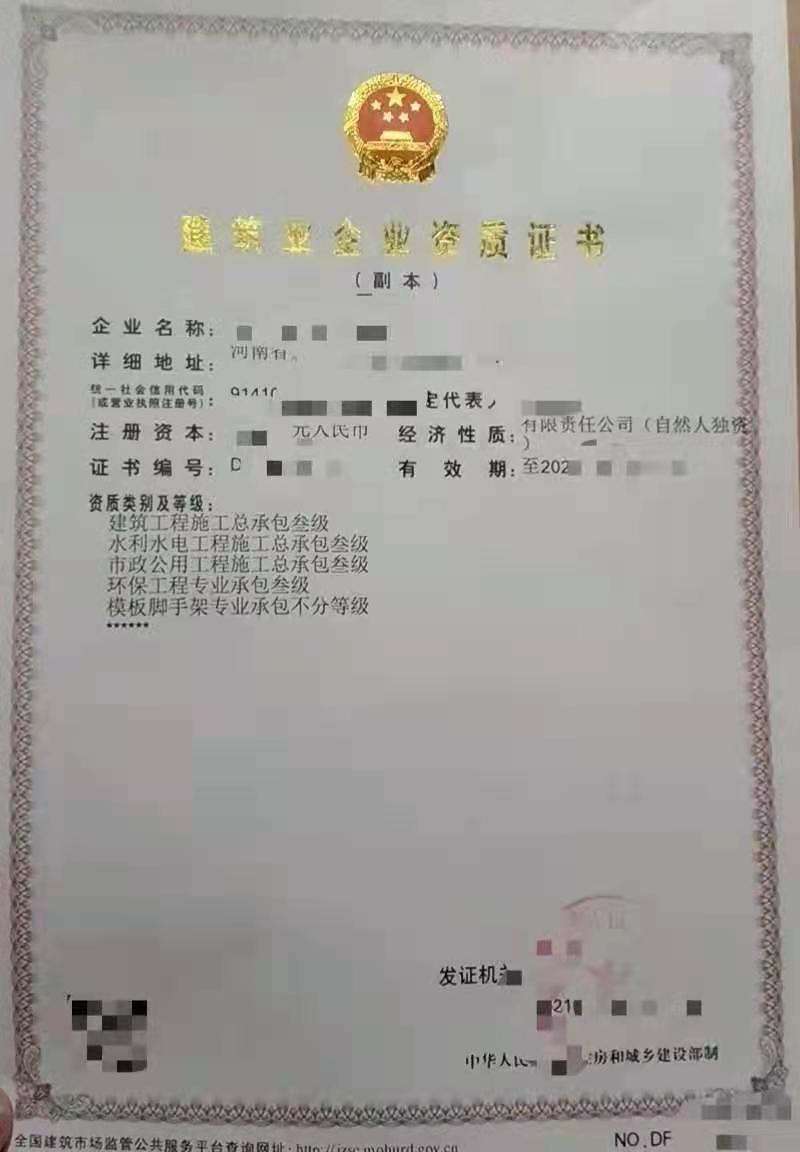 建筑业企业资质证书
（副本）
企业名称：
详细地址： 河南省
统一社会信用代码
（或营业执照注册号）： 91410 定代表人
注册资本： 元人民币 经济性质： 有限责任公司（自然人独资
）
证书编号： D 有效期： 至202
资质类别及等级：
建筑工程施工总承包叁级
水利水电工程施工总承包叁级
市政公用工程施工总承包叁级
环保工程专业承包叁级
模板脚手架专业承包不分等级
******
发证机关
21
中华人民 房和城乡建设部制
全国建筑市场监管公共服务平台查询网址：http://jzsc.mohurd.gov.cn
NO.DF